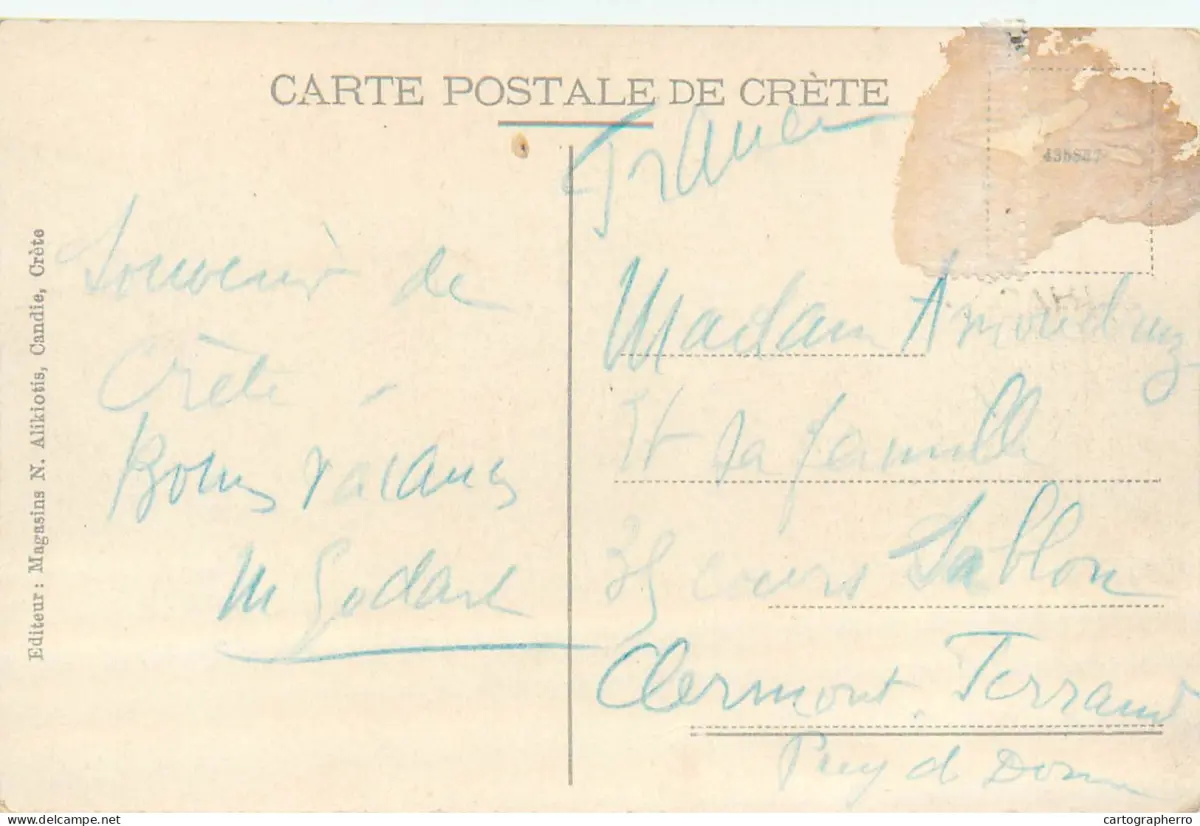 CARTE POSTALE DE CRÈTE
Editeur: Magasins N. Alikiotis, Candie, Crète
Souvenir de
Crète -
Bonnes vacances
M Godard
France
Madame
Et sa famille
35 cours Sablon
Clermont. Ferrand
Puy d Dome
cartographerro